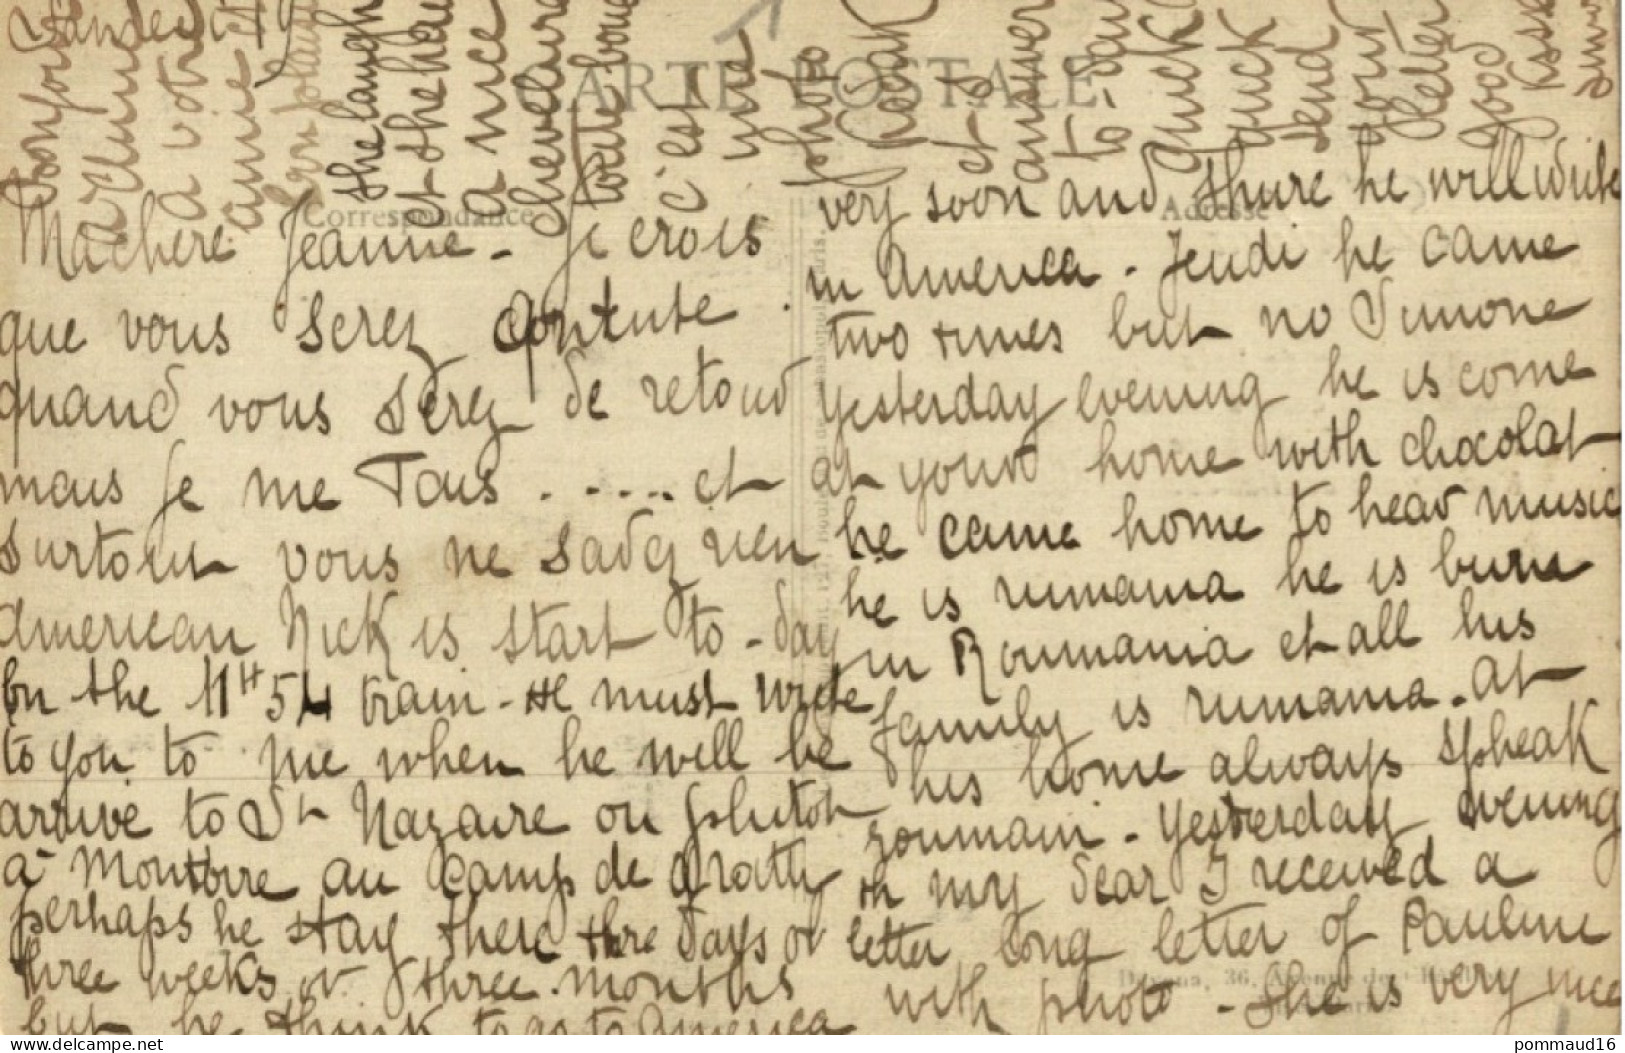 Ma chère Jeanne - Je crois
que vous serez contente
quand vous serez de retour
mais je me Tais ..... et
surtout vous ne savez rien
American Nick is start to-day
on the 11H 54 train - He must write
to you to me when he will be
arrive to St Nazaire ou plutot
à Montoire au camp de
perhaps he stay there three days or
three weeks or three months
but he think to go to America
very soon and there he will write
in America - Jeudi he came
two times but no Simone
yesterday evening he is come
at your home with chocolat
he came home to hear music
he is rumania he is burn
in Roumania et all his
family is rumania - at
his home always speak
roumain - yesterday evening
oh my dear I received a
letter long letter of Pauline
with photo - She is very nice
she laugh
et she has
a nice
chevelure
c'est
une
photo
et
answer
to
quick
quick
send
your
letter
Good
Kisses
CARTE POSTALE
Correspondance
Adresse
pommaud16